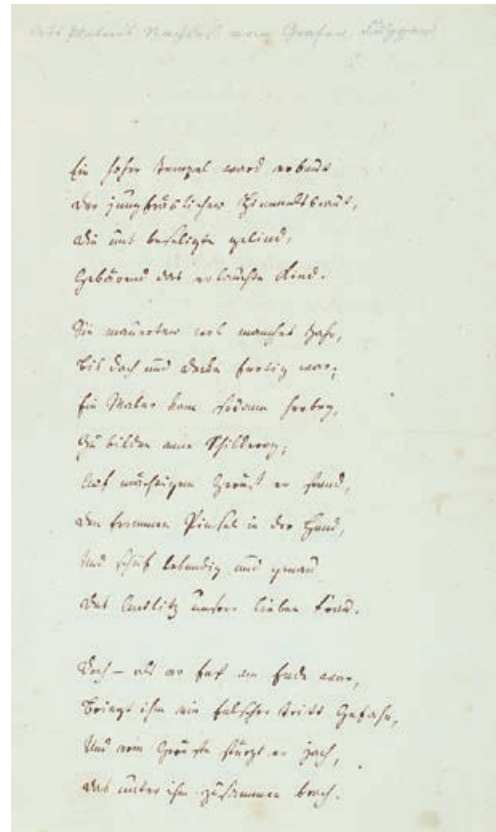 Ein hoher Tempel ward erbaut
Der jungfräulichen Himmelsbraut,
Die uns beseligte gelind,
Gebärend das erlauchte Kind.
Sie mauerten wol manches Jahr,
Bis Dach und Decke fertig war;
Ein Maler kam sodann herbey,
Zu bilden eine Schilderey;
Auf mächtigem Gerüst er stand,
Den frommen Pinsel in der Hand,
Und schuf lebendig und genau
Das Antlitz unsrer lieben Frau.
Doch – als er fast am Ende war,
Bringt ihm ein falscher Tritt Gefahr,
Und vom Gerüste stürzt er jach,
Das unter ihm zusammen brach.